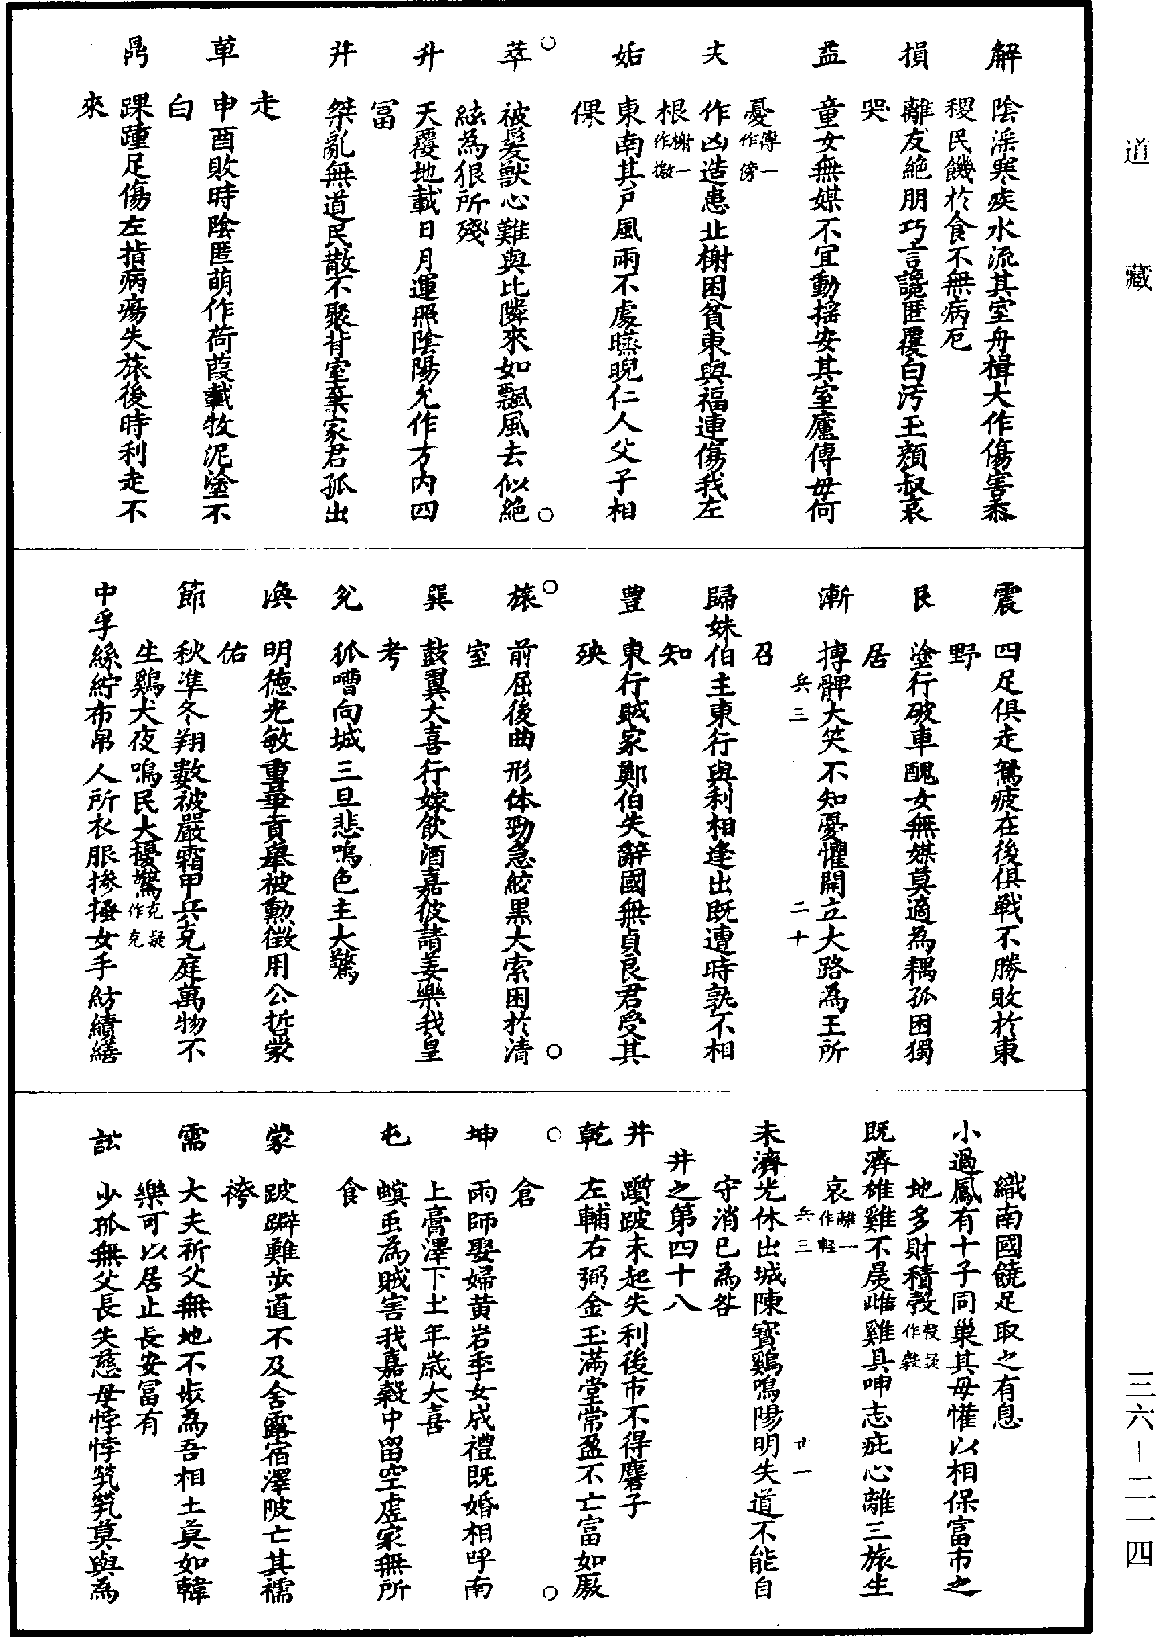 道藏
三六—二一四
解　陰淫寒疾水流其室舟楫大作傷害黍
稷民饑於食不無病厄
損　離友絶朋巧言讒匿覆白汚玉顔叔哀
哭
益　童女無媒不宜動搖安其室廬傅母何
憂傅一作傍
夬　作凶造患北榭困貧東與福連傷我左
根榭一作檄
姤　東南其戸風雨不處曣晛仁人父子相
保
萃　被髮獸心難與比隣來如飄風去似絶
絃為狼所殘
升　天覆地載日月運照陰陽允作方内四
富
井　桀亂無道民散不聚背室棄家君孤出
走
革　申酉敗時陰匿萌作荷葭載牧泥塗不
白
鼎　踝踵足傷左指病瘍失旅後時利走不
來
震　四足俱走駑疲在後俱戰不勝敗於東
野
艮　塗行破車醜女無媒莫適為耦孤困獨
居
漸　摶髀大笑不知憂懼開立大路為王所
兵三　二十
召
歸妹伯主東行與利相逢出既遭時孰不相
知
豐　東行賊家鄭伯失辭國無貞良君受其
殃
旅　前屈後曲形体勁急絞黒大索困於清
室
巽　鼓翼大喜行嫁飲酒嘉彼諸姜樂我皇
考
兌　狐嘈向城三旦悲鳴色主大驚
渙　明德光敏重華貢舉被勳徴用公哲蒙
佑
節　秋凖冬翔數被嚴霜甲兵克庭萬物不
生鷄犬夜鳴民大擾驚克疑作充
中孚絲紵布帛人所衣服摻掻女手紡績繕
織南國饒足取之有息
小過鳳有十子同巢其母懽以相保富市之
地多財積㝅㝅疑作穀
既濟雄雞不晨雌雞且呻志疵心離三旅生
哀離一作輕
未濟光休出城陳寳鷄鳴陽明失道不能自
兵三　廿一
守消巳為咎
井之第四十八
井　躓跛未起失利後市不得麞子
乾　左輔右弼金玉滿堂常盈不亡富如厫
倉
坤　雨師娶婦黄岩季女成禮既婚相呼南
上膏澤下土年歳大喜
屯　螟䖝為賊害我嘉穀中留空虚家無所
食
蒙　跛躃難步道不及舍露宿澤陂亡其襦
袴
需　大夫祈父無地不歩為吾相土莫如韓
樂可以居止長安冨有
訟　少孤無父長失慈母悖悖煢煢莫與為